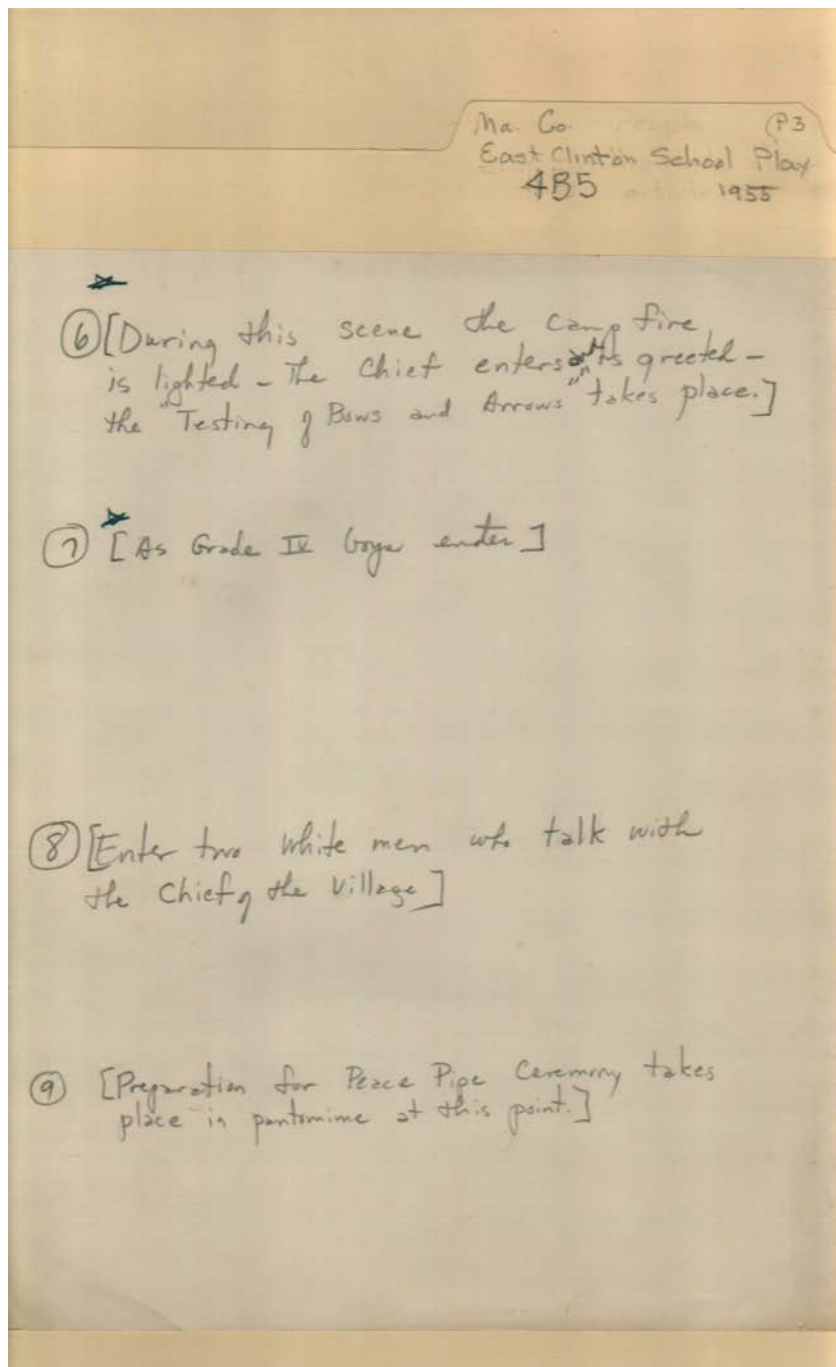 Ma. Co. P3
East Clinton School Play
4B5 1955
⑥ [During this scene the camp fire
is lighted - The Chief enters and is greeted -
the "Testing of Bows and Arrows" takes place.]
⑦ [As Grade IV boys enter]
⑧ [Enter two white men who talk with
the Chief of the Village]
⑨ [Preparation for Peace Pipe Ceremony takes
place in pantomime at this point.]